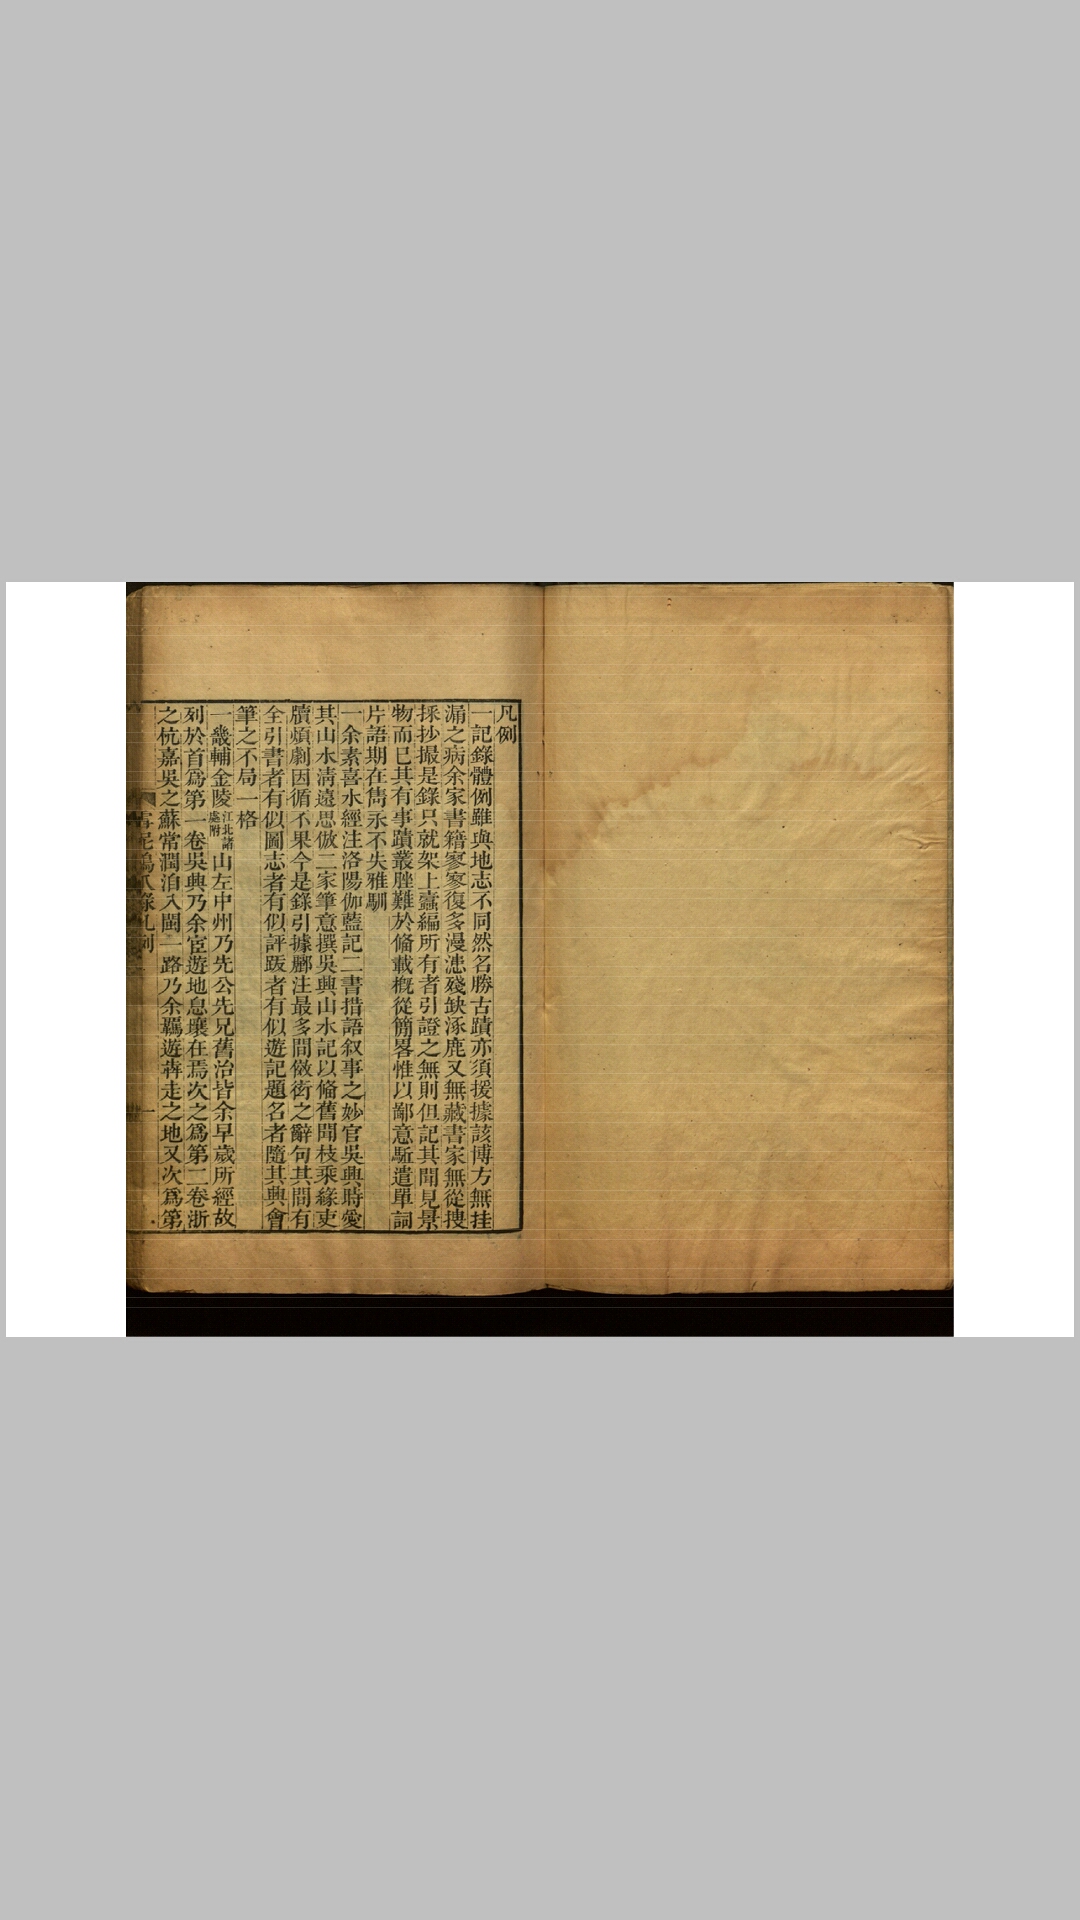 凡例
一記錄體例雖與地志不同然名勝古蹟亦須援據該博方無挂
漏之病余家書籍寥寥復多漫漶殘缺涿鹿又無藏書家無從搜
採抄撮是錄只就架上蠹編所有者引證之無則但記其聞見景
物而已其有事蹟叢脞難於備載槪從簡畧惟以鄙意駈遣單詞
片語期在雋永不失雅馴
一余素喜水經注洛陽伽藍記二書措語叙事之妙官吳興時愛
其山水清遠思倣二家筆意撰吳興山水記以備舊聞枝乘緣吏
牘煩劇因循不果今是錄引據酈注最多間倣衒之辭句其間有
全引書者有似圖志者有似評跋者有似遊記題名者隨其興會
筆之不局一格
一畿輔金陵江北諸處附山左中州乃先公先兄舊治皆余早歲所經故
列於首爲第一卷吳興乃余宦遊地息壤在焉次之爲第二卷浙
之杭嘉吳之蘇常潤洎入閩一路乃余羈遊犇走之地又次爲第
雪泥鴻爪錄凡例 一